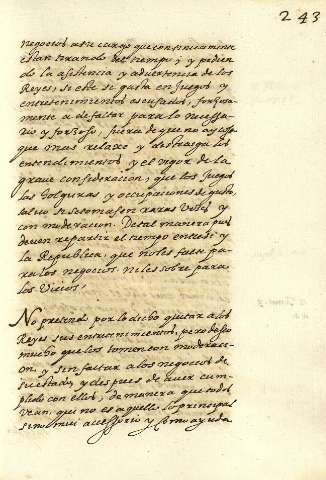 243
negocios a su cargo que continuamente
estan tirando del tiempo; y pidien
do la asistencia y advertencia de los
Reyes, si este se gasta en Juegos y
entretenimientos escusados, forzosa
mente a de faltar para lo necessa
rio y forzoso, fuera de que no ay cosa
que mas relaxe y destrasga los
entendimientos, y el vigor de la
grave consideracion, que los Juegos
las holguras y occupaciones de gusto
salvo si se tomasen raras Vezes y
con moderacion. De tal manera pues
deven repartir el tiempo entre si y
la Republica, que no les falte pa
ra los negocios, ni les sobre para
los Vicios.
No pretendo por lo dicho quitar a los
Reyes sus entretenimientos, pero desseo
mucho que los tomen con moderaci
on, y sin faltar a los negocios de
su estado, y despues de aver cum
plido con ellos, de manera que todos
vean, que no es aquello lo principal
sino mui accessorio y como ayuda